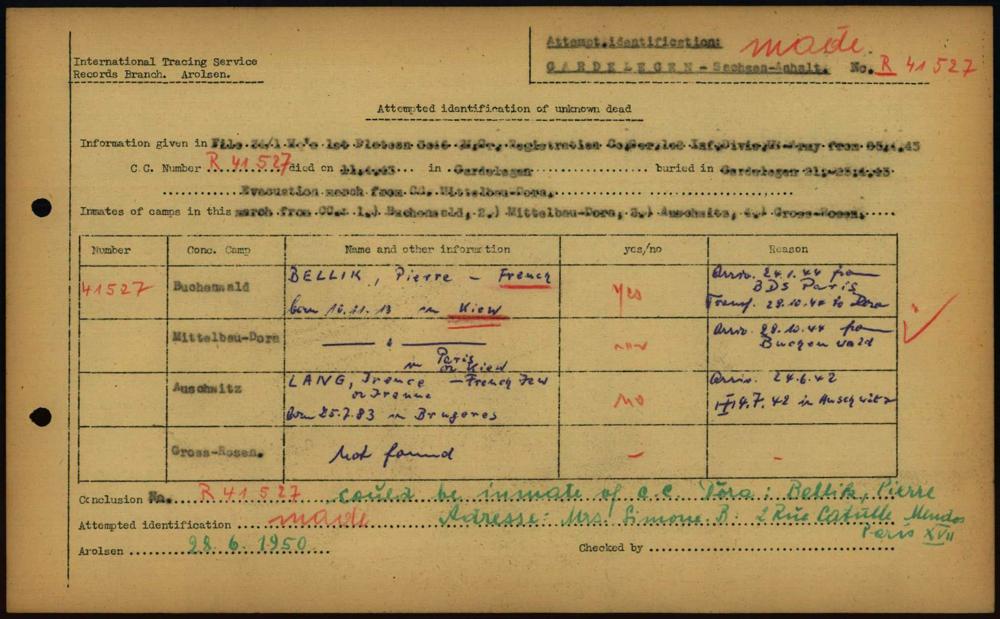 International Tracing Service
Records Branch. Arolsen.
Attempt.identification: made.
GARDELEGEN - Sachsen-Anhalt. No. R 41527
Attempted identification of unknown dead
Information given in File 1st Platoon Registration Co, from
C.C. Number R 41527 died on in Gardelegen buried in Gardelegen
Evacuation march from CC. Mittelbau-Dora.
Inmates of camps in this march from CC.: 1.) Buchenwald, 2.) Mittelbau-Dora, 3.) Auschwitz, 4.) Gross-Rosen.
Number Conc. Camp Name and other information yes/no Reason
41527 Buchenwald BELLIK, Pierre - French yes Arriv. 24.1.44 from
BDS Paris
born 16.11.13 in Kiew Transf. 28.10.44 to Dora
Mittelbau-Dora Arriv. 28.10.44 from
Buchenwald
in Paris
or Kiew
Auschwitz LANG, Irence - French Jew no Arriv. 24.6.42
or Irenne
born 25.7.83 in Brugeres 14.7.42 in Auschwitz
Gross-Rosen. Not found - -
Conclusion No. R 41527 could be inmate of c.c. Dora: Bellik, Pierre
Attempted identification made Adresse: Mrs. Simone B. 2 Rue Catulle Mendes
Paris XVII
Arolsen 28.6.1950 Checked by